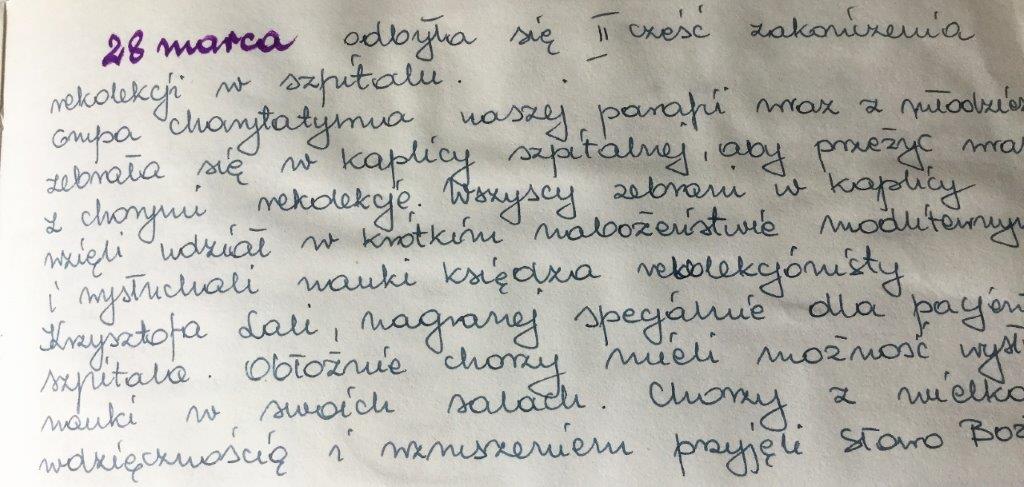 28 marca odbyła się II część zakończenia
rekolekcji w szpitalu.
Grupa charytatywna naszej parafii wraz z młodzież
zebrała się w kaplicy szpitalnej, aby przeżyć wra
z chorymi rekolekcje. Wszyscy zebrani w kaplicy
wzięli udział w krótkim nabożeństwie modlitewnym
i wysłuchali nauki księdza rekolekcjonisty
Krzysztofa Lali, nagranej specjalnie dla pacjent
szpitala. Obłożnie chorzy mieli możność wysł
nauki w swoich salach. Chorzy z wielką
wdzięcznością i wzruszeniem przyjęli Słowo Boż